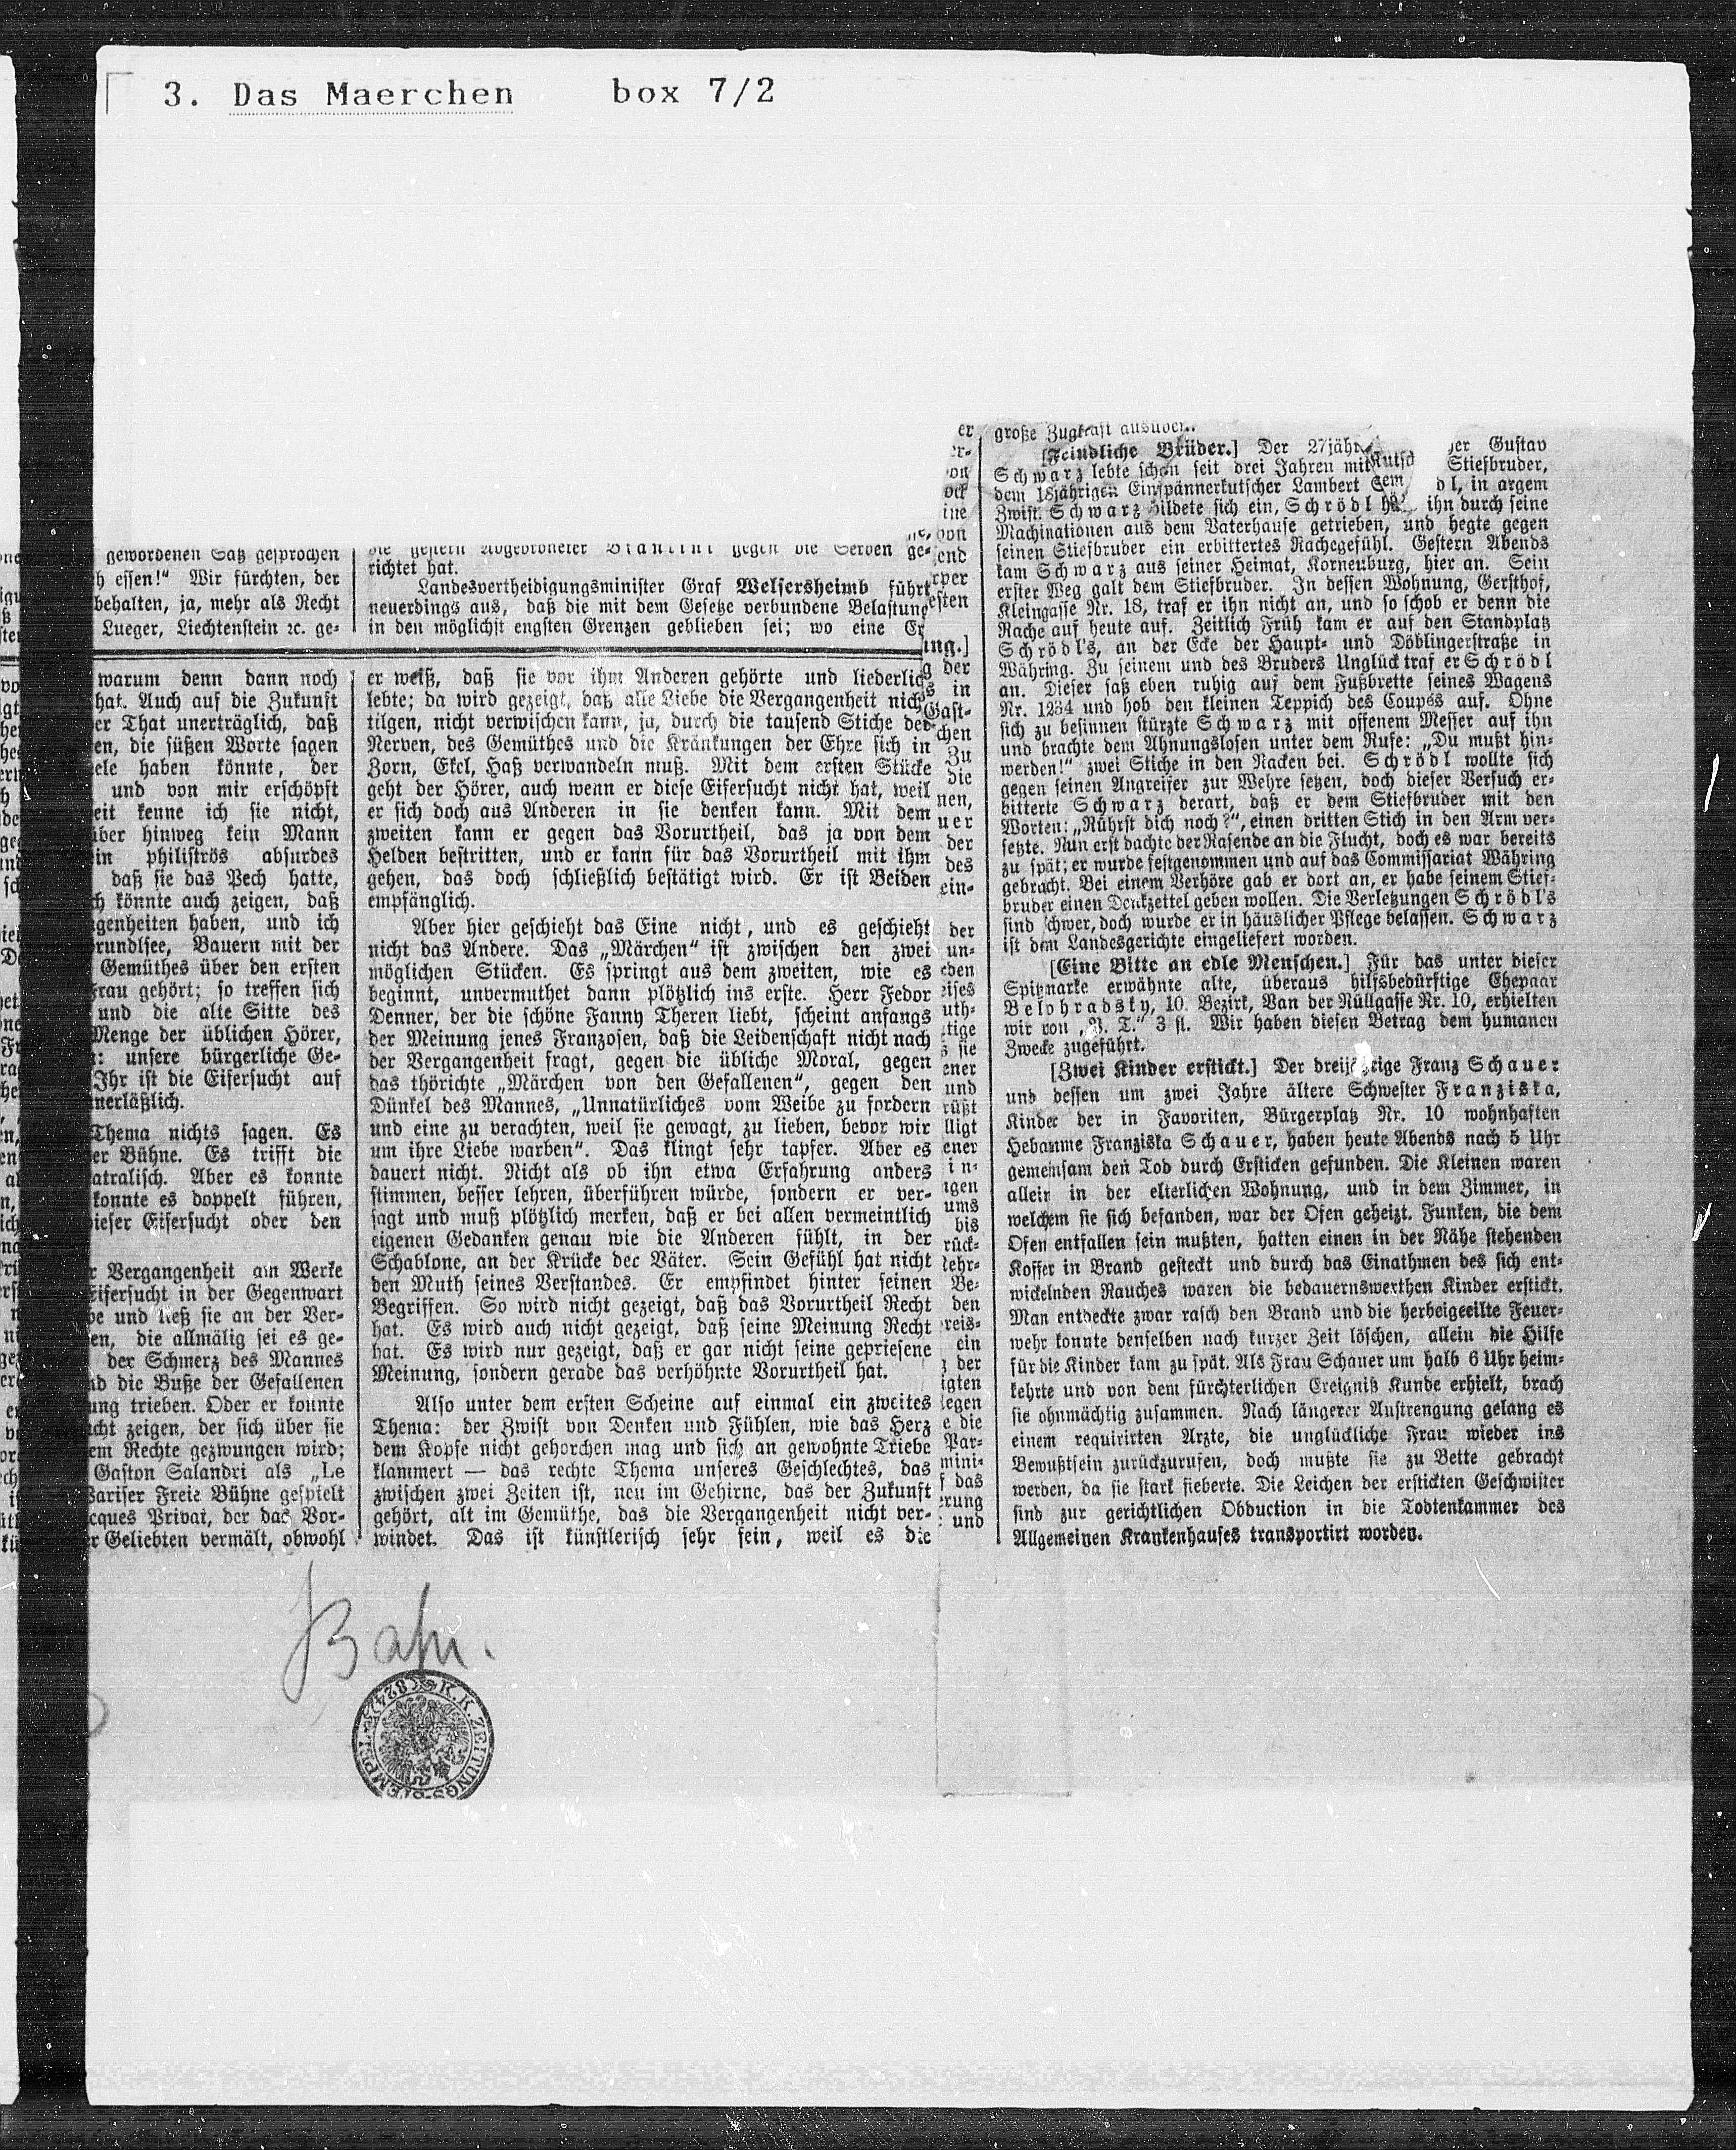 3. Das Maerchen box 7/2
gewordenen Satz gesprochen
h essen!“ Wir fürchten, der
behalten, ja, mehr als Recht
Lueger, Liechtenstein ꝛc. ge-
warum denn dann noch
hat. Auch auf die Zukunft
er That unerträglich, daß
en, die süßen Worte sagen
ele haben könnte, der
und von mir erschöpft
eit kenne ich sie nicht,
über hinweg kein Mann
in philiströs absurdes
daß sie das Pech hatte,
ch könnte auch zeigen, daß
genheiten haben, und ich
rundlsee, Bauern mit der
Gemüthes über den ersten
Frau gehört; so treffen sich
und die alte Sitte des
Menge der üblichen Hörer,
: unsere bürgerliche Ge-
Ihr ist die Eifersucht auf
nerläßlich.
Thema nichts sagen. Es
er Bühne. Es trifft die
atralisch. Aber es konnte
konnte es doppelt führen,
ieser Eifersucht oder den
r Vergangenheit am Werke
Eifersucht in der Gegenwart
be und ließ sie an der Ver-
en, die allmälig sei es ge-
der Schmerz des Mannes
nd die Buße der Gefallenen
ung trieben. Oder er konnte
icht zeigen, der sich über sie
em Rechte gezwungen wird;
Gaston Salandri als „Le
Pariser Freie Bühne gespielt
cques Privai, der das Vor-
r Geliebten vermält, obwohl
die gestern Abgeordneter Biankini gegen die Serben ge-
richtet hat.
Landesvertheidigungsminister Graf Welsersheimb führt
neuerdings aus, daß die mit dem Gesetze verbundene Belastung
in den möglichst engsten Grenzen geblieben sei; wo eine Er
er weiß, daß sie vor ihm Anderen gehörte und liederlich
lebte; da wird gezeigt, daß alle Liebe die Vergangenheit nich
tilgen, nicht verwischen kann, ja, durch die tausend Stiche der
Nerven, des Gemüthes und die Kränkungen der Ehre sich in
Zorn, Ekel, Haß verwandeln muß. Mit dem ersten Stücke
geht der Hörer, auch wenn er diese Eifersucht nicht hat, weil
er sich doch aus Anderen in sie denken kann. Mit dem
zweiten kann er gegen das Vorurtheil, das ja von dem
Helden bestritten, und er kann für das Vorurtheil mit ihm
gehen, das doch schließlich bestätigt wird. Er ist Beiden
empfänglich.
Aber hier geschieht das Eine nicht, und es geschieht
nicht das Andere. Das „Märchen“ ist zwischen den zwei
möglichen Stücken. Es springt aus dem zweiten, wie es
beginnt, unvermuthet dann plötzlich ins erste. Herr Fedor
Denner, der die schöne Fanny Theren liebt, scheint anfangs
der Meinung jenes Franzosen, daß die Leidenschaft nicht nach
der Vergangenheit fragt, gegen die übliche Moral, gegen
das thörichte „Märchen von den Gefallenen“, gegen den
Dünkel des Mannes, „Unnatürliches vom Weibe zu fordern
und eine zu verachten, weil sie gewagt, zu lieben, bevor wir
um ihre Liebe warben“. Das klingt sehr tapfer. Aber es
dauert nicht. Nicht als ob ihn etwa Erfahrung anders
stimmen, besser lehren, überführen würde, sondern er ver-
sagt und muß plötzlich merken, daß er bei allen vermeintlich
eigenen Gedanken genau wie die Anderen fühlt, in der
Schablone, an der Krücke der Väter. Sein Gefühl hat nicht
den Muth seines Verstandes. Er empfindet hinter seinen
Begriffen. So wird nicht gezeigt, daß das Vorurtheil Recht
hat. Es wird auch nicht gezeigt, daß seine Meinung Recht
hat. Es wird nur gezeigt, daß er gar nicht seine gepriesene
Meinung, sondern gerade das verhöhnte Vorurtheil hat.
Also unter dem ersten Scheine auf einmal ein zweites
Thema: der Zwist von Denken und Fühlen, wie das Herz
dem Kopfe nicht gehorchen mag und sich an gewohnte Triebe
klammert — das rechte Thema unseres Geschlechtes, das
zwischen zwei Zeiten ist, neu im Gehirne, das der Zukunft
gehört, alt im Gemüthe, das die Vergangenheit nicht ver-
windet. Das ist künstlerisch sehr fein, weil es die
große Zugkraft ausüben.
[Feindliche Brüder.] Der 27jähr Kutsch er Gustav
Schwarz lebte schon seit drei Jahren mit Stiefbruder,
dem 18jährigen Einspännerkutscher Lambert dl, in argem
Zwist. Schwarz bildete sich ein, Schrödl ihn durch seine
Machinationen aus dem Vaterhause getrieben, und hegte gegen
seinen Stiefbruder ein erbittertes Rachegefühl. Gestern Abends
kam Schwarz aus seiner Heimat, Korneuburg, hier an. Sein
erster Weg galt dem Stiefbruder. In dessen Wohnung, Gersthof,
Kleingasse Nr. 18, traf er ihn nicht an, und so schob er denn die
Rache auf heute auf. Zeitlich Früh kam er auf den Standplatz
Schrödl's, an der Ecke der Haupt- und Döblingerstraße in
Währing. Zu seinem und des Bruders Unglück traf er Schrödl
an. Dieser saß eben ruhig auf dem Fußbrette seines Wagens
Nr. 1234 und hob den kleinen Teppich des Coupés auf. Ohne
sich zu besinnen stürzte Schwarz mit offenem Messer auf ihn
und brachte dem Ahnungslosen unter dem Rufe: „Du mußt hin-
werden!“ zwei Stiche in den Nacken bei. Schrödl wollte sich
gegen seinen Angreifer zur Wehre setzen, doch dieser Versuch er-
bitterte Schwarz derart, daß er dem Stiefbruder mit den
Worten: „Rührst dich noch?“, einen dritten Stich in den Arm ver-
setzte. Nun erst dachte der Rasende an die Flucht, doch es war bereits
zu spät; er wurde festgenommen und auf das Commissariat Währing
gebracht. Bei einem Verhöre gab er dort an, er habe seinem Stief-
bruder einen Denkzettel geben wollen. Die Verletzungen Schrödl's
sind schwer, doch wurde er in häuslicher Pflege belassen. Schwarz
ist dem Landesgerichte eingeliefert worden.
[Eine Bitte an edle Menschen.] Für das unter dieser
Spitzmarke erwähnte alte, überaus hilfsbedürftige Ehepaar
Belohradsky, 10. Bezirk, Van der Nüllgasse Nr. 10, erhielten
wir von T.“ 3 fl. Wir haben diesen Betrag dem humanen
Zwecke zugeführt.
[Zwei Kinder erstickt.] Der dreijährige Franz Schauer
und dessen um zwei Jahre ältere Schwester Franziska,
Kinder der in Favoriten, Bürgerplatz Nr. 10 wohnhaften
Hebamme Franziska Schauer, haben heute Abends nach 5 Uhr
gemeinsam den Tod durch Ersticken gefunden. Die Kleinen waren
allein in der elterlichen Wohnung, und in dem Zimmer, in
welchem sie sich befanden, war der Ofen geheizt. Funken, die dem
Ofen entfallen sein mußten, hatten einen in der Nähe stehenden
Koffer in Brand gesteckt und durch das Einathmen des sich ent-
wickelnden Rauches waren die bedauernswerthen Kinder erstickt.
Man entdeckte zwar rasch den Brand und die herbeigeeilte Feuer-
wehr konnte denselben nach kurzer Zeit löschen, allein die Hilfe
für die Kinder kam zu spät. Als Frau Schauer um halb 6 Uhr heim-
kehrte und von dem fürchterlichen Ereigniß Kunde erhielt, brach
sie ohnmächtig zusammen. Nach längerer Anstrengung gelang es
einem requirirten Arzte, die unglückliche Frau wieder ins
Bewußtsein zurückzurufen, doch mußte sie zu Bette gebracht
werden, da sie stark fieberte. Die Leichen der erstickten Geschwister
sind zur gerichtlichen Obduction in die Todtenkammer des
Allgemeinen Krankenhauses transportirt worden.
Bahr.
K. K. ZEITUNGS-STEMPEL